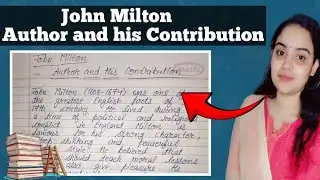 John Milton
Author and his Contribution
John Milton
Author and His Contribution
John Milton (1608-1674) was one of
the greatest English poets of
17th century. He lived during
a time of political and religious
conflict in England. Milton is
famous for his strong character,
deep thinking and powerful
style. He believed that
should teach moral lessons
also give pleasure. He